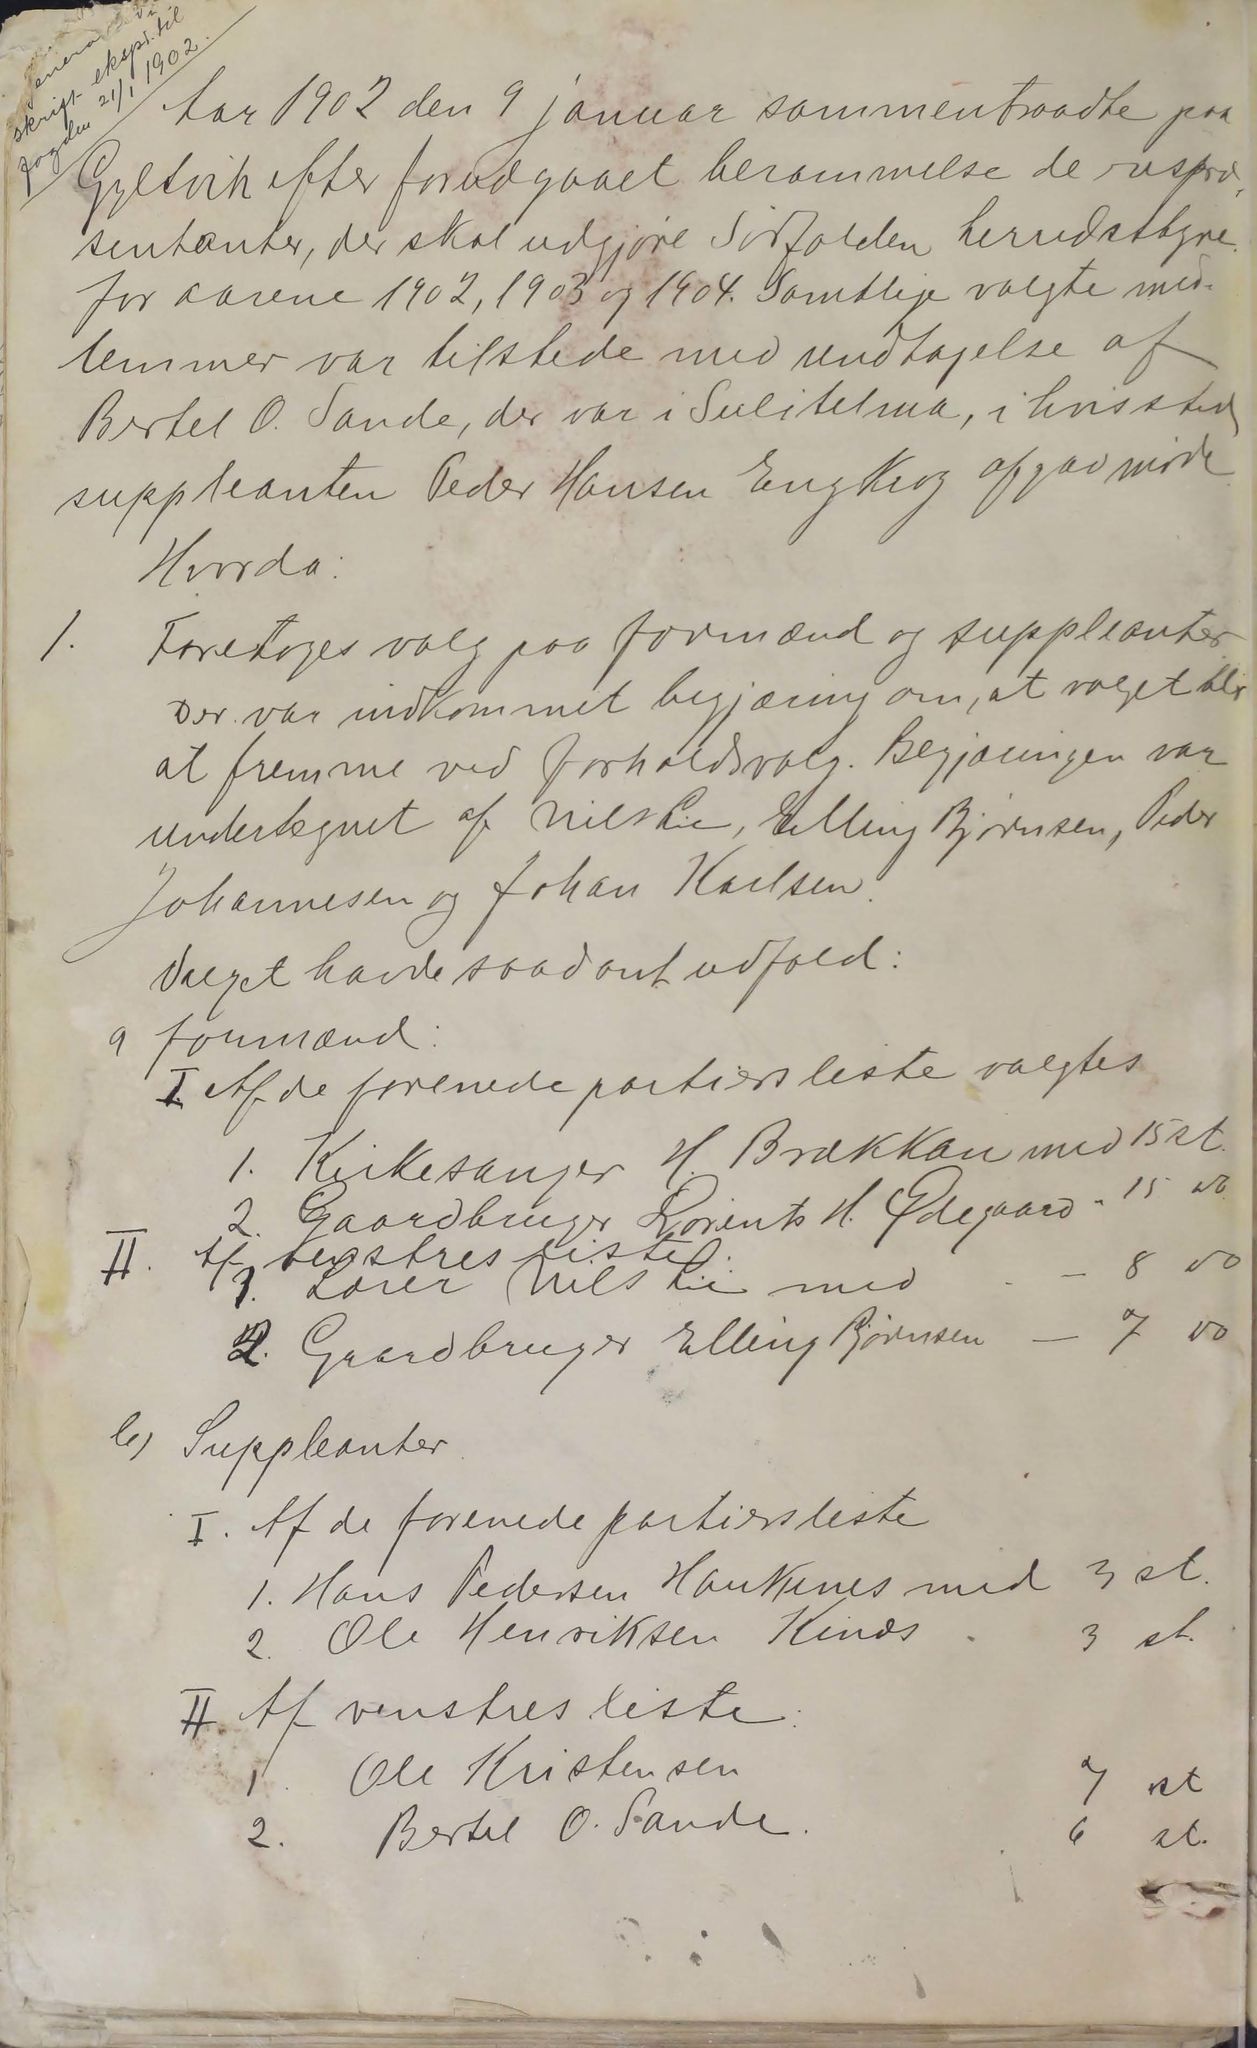 skrift ekspt. til
fogden 21/1 1902.
Aar 1902 den 9 januar sammentraadte paa
Gyltvik efter forudgaaet berammelse de repræ-
sentanter, der skal udgjøre Sørfolden herredsstyre
for aarene 1902, 1903 og 1904. Samtlige valgte med-
lemmer var tilstede med undtagelse af
Bertel O. Sande, der var i Sulitelma, i hvis sted
suppleanten Peder Hansen Engkrog afgav møde
Hvorda:
1. Foretoges valg paa formænd og suppleanter
Der var indkommet begjæring om, at valget blir
at fremme ved forholdsvalg. Begjæringen var
undertegnet af Nils Lie, Elling Bjørnsen, Peder
Johannesen og Johan Karlsen.
Valget havde saadant udfald:
a formænd:
I Af de forenede partiers liste valgtes
1. Kirkesanger H. Brækkan med 15 st.
2. Gaardbruger Lorents H. Ødegaard - 15 do
II. Af venstres liste:
1. Lærer Nils Lie med - 8 do
2. Gaardbruger Elling Bjørnsen — 7 do
b) Suppleanter
I. Af de forenede partiers liste
1. Hans Pedersen Haukenes med 3 st.
2. Ole Henriksen Kinæs . 3 st.
II Af venstres liste:
1. Ole Kristensen 7 st
2. Bertel O. Sande. 6 st.